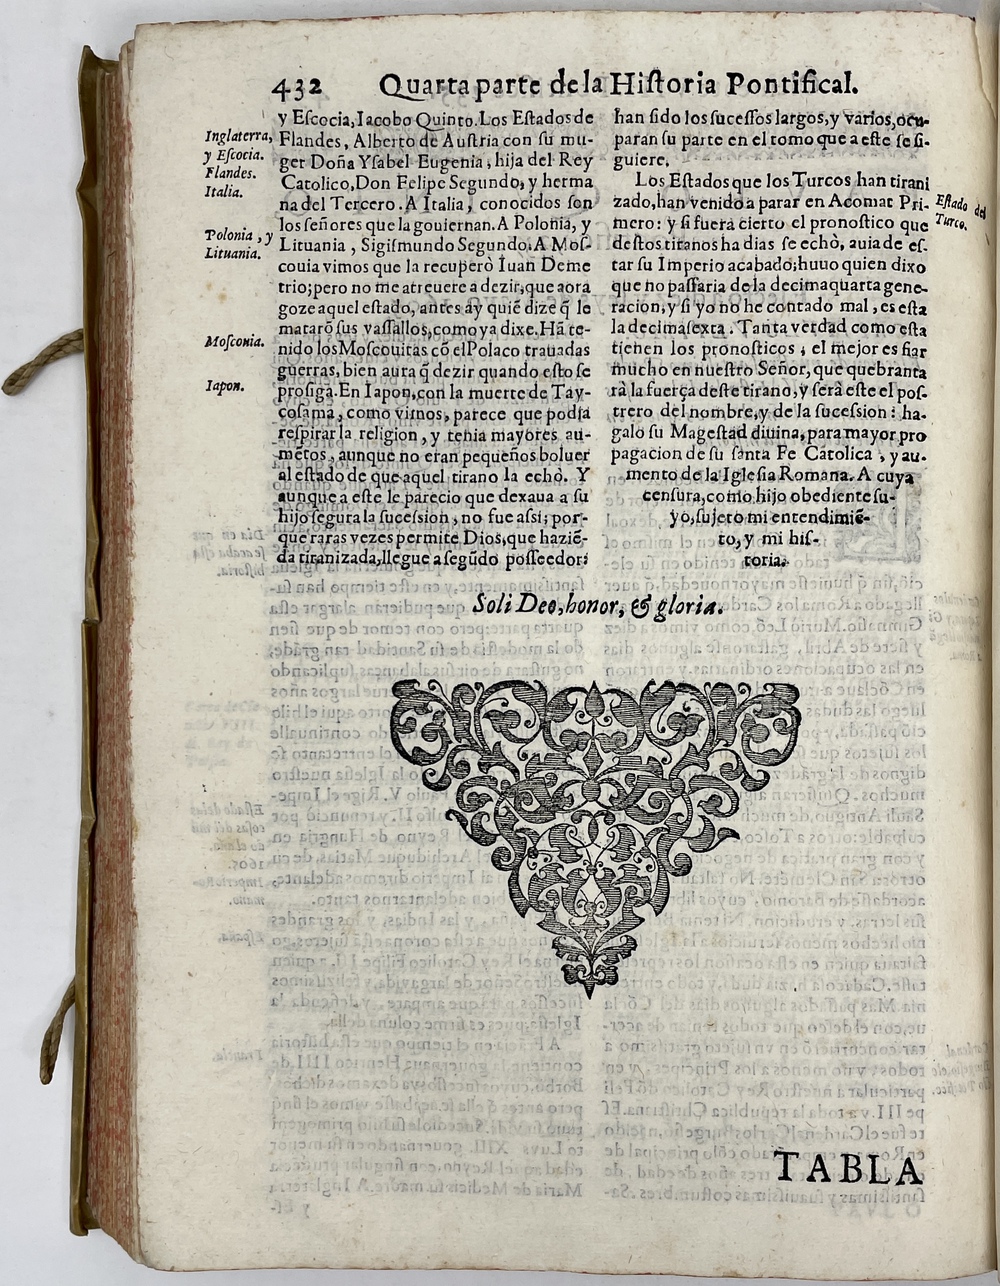 432 Quarta parte de la Hiſtoria Pontifical.
y Eſcocia, Iacobo Quinto. Los Eſtados de
Flandes, Alberto de Auſtria con ſu mu-
ger Doña Yſabel Eugenia, hija del Rey
Catolico, Don Felipe Segundo, y herma
na del Tercero. A Italia, conocidos ſon
los ſeñores que la gouiernan. A Polonia, y
Lituania, Sigiſmundo Segundo. A Moſ-
couia vimos que la recuperò Iuan Deme
trio; pero no me atreuere a dezir, que aora
goze aquel eſtado, antes ay quiē dize q̄ le
matarō ſus vaſſallos, como ya dixe. Hā te-
nido los Moſcouitas cō el Polaco trauadas
guerras, bien aura q̄ dezir quando eſto ſe
proſiga. En Iapon, con la muerte de Tay-
coſama, como vimos, parece que podia
reſpirar la religion, y tenia mayores au-
mētos, aunque no eran pequeños boluer
al eſtado de que aquel tirano la echò. Y
aunque a eſte le parecio que dexaua a ſu
hijo ſegura la ſuceſſion, no fue aſsi; por-
que raras vezes permite Dios, que haziē-
da tiranizada, llegue a ſegūdo poſſeedor:
Inglaterra,
y Eſcocia.
Flandes.
Italia.
Polonia, y
Lituania.
Moſcouia.
Iapon.
han ſido los ſuceſſos largos, y varios, ocu-
paran ſu parte en el tomo que a eſte ſe ſi-
guiere.
Los Eſtados que los Turcos han tirani
zado, han venido a parar en Acomat Pri-
mero: y ſi fuera cierto el pronoſtico que
deſtos titanos ha dias ſe echò, auia de eſ-
tar ſu Imperio acabado; huuo quien dixo
que no paſſaria de la decimaquarta gene-
racion, y ſi yo no he contado mal, es eſta
la decimaſexta. Tanta verdad como eſta
tienen los pronoſticos, el mejor es fiar
mucho en nueſtro Señor, que quebranta
rà la fuerça deſte tirano, y ſerà eſte el poſ-
trero del nombre, y de la ſuceſsion: ha-
galo ſu Mageſtad diuina, para mayor pro
pagacion de ſu ſanta Fe Catolica, y au-
mento de la Igleſia Romana. A cuya
cenſura, como hijo obediente ſu-
yo, ſujeto mi entendimiē-
to, y mi hiſ-
toria.
Eſtado del
Turco.
Soli Deo, honor, & gloria.
TABLA